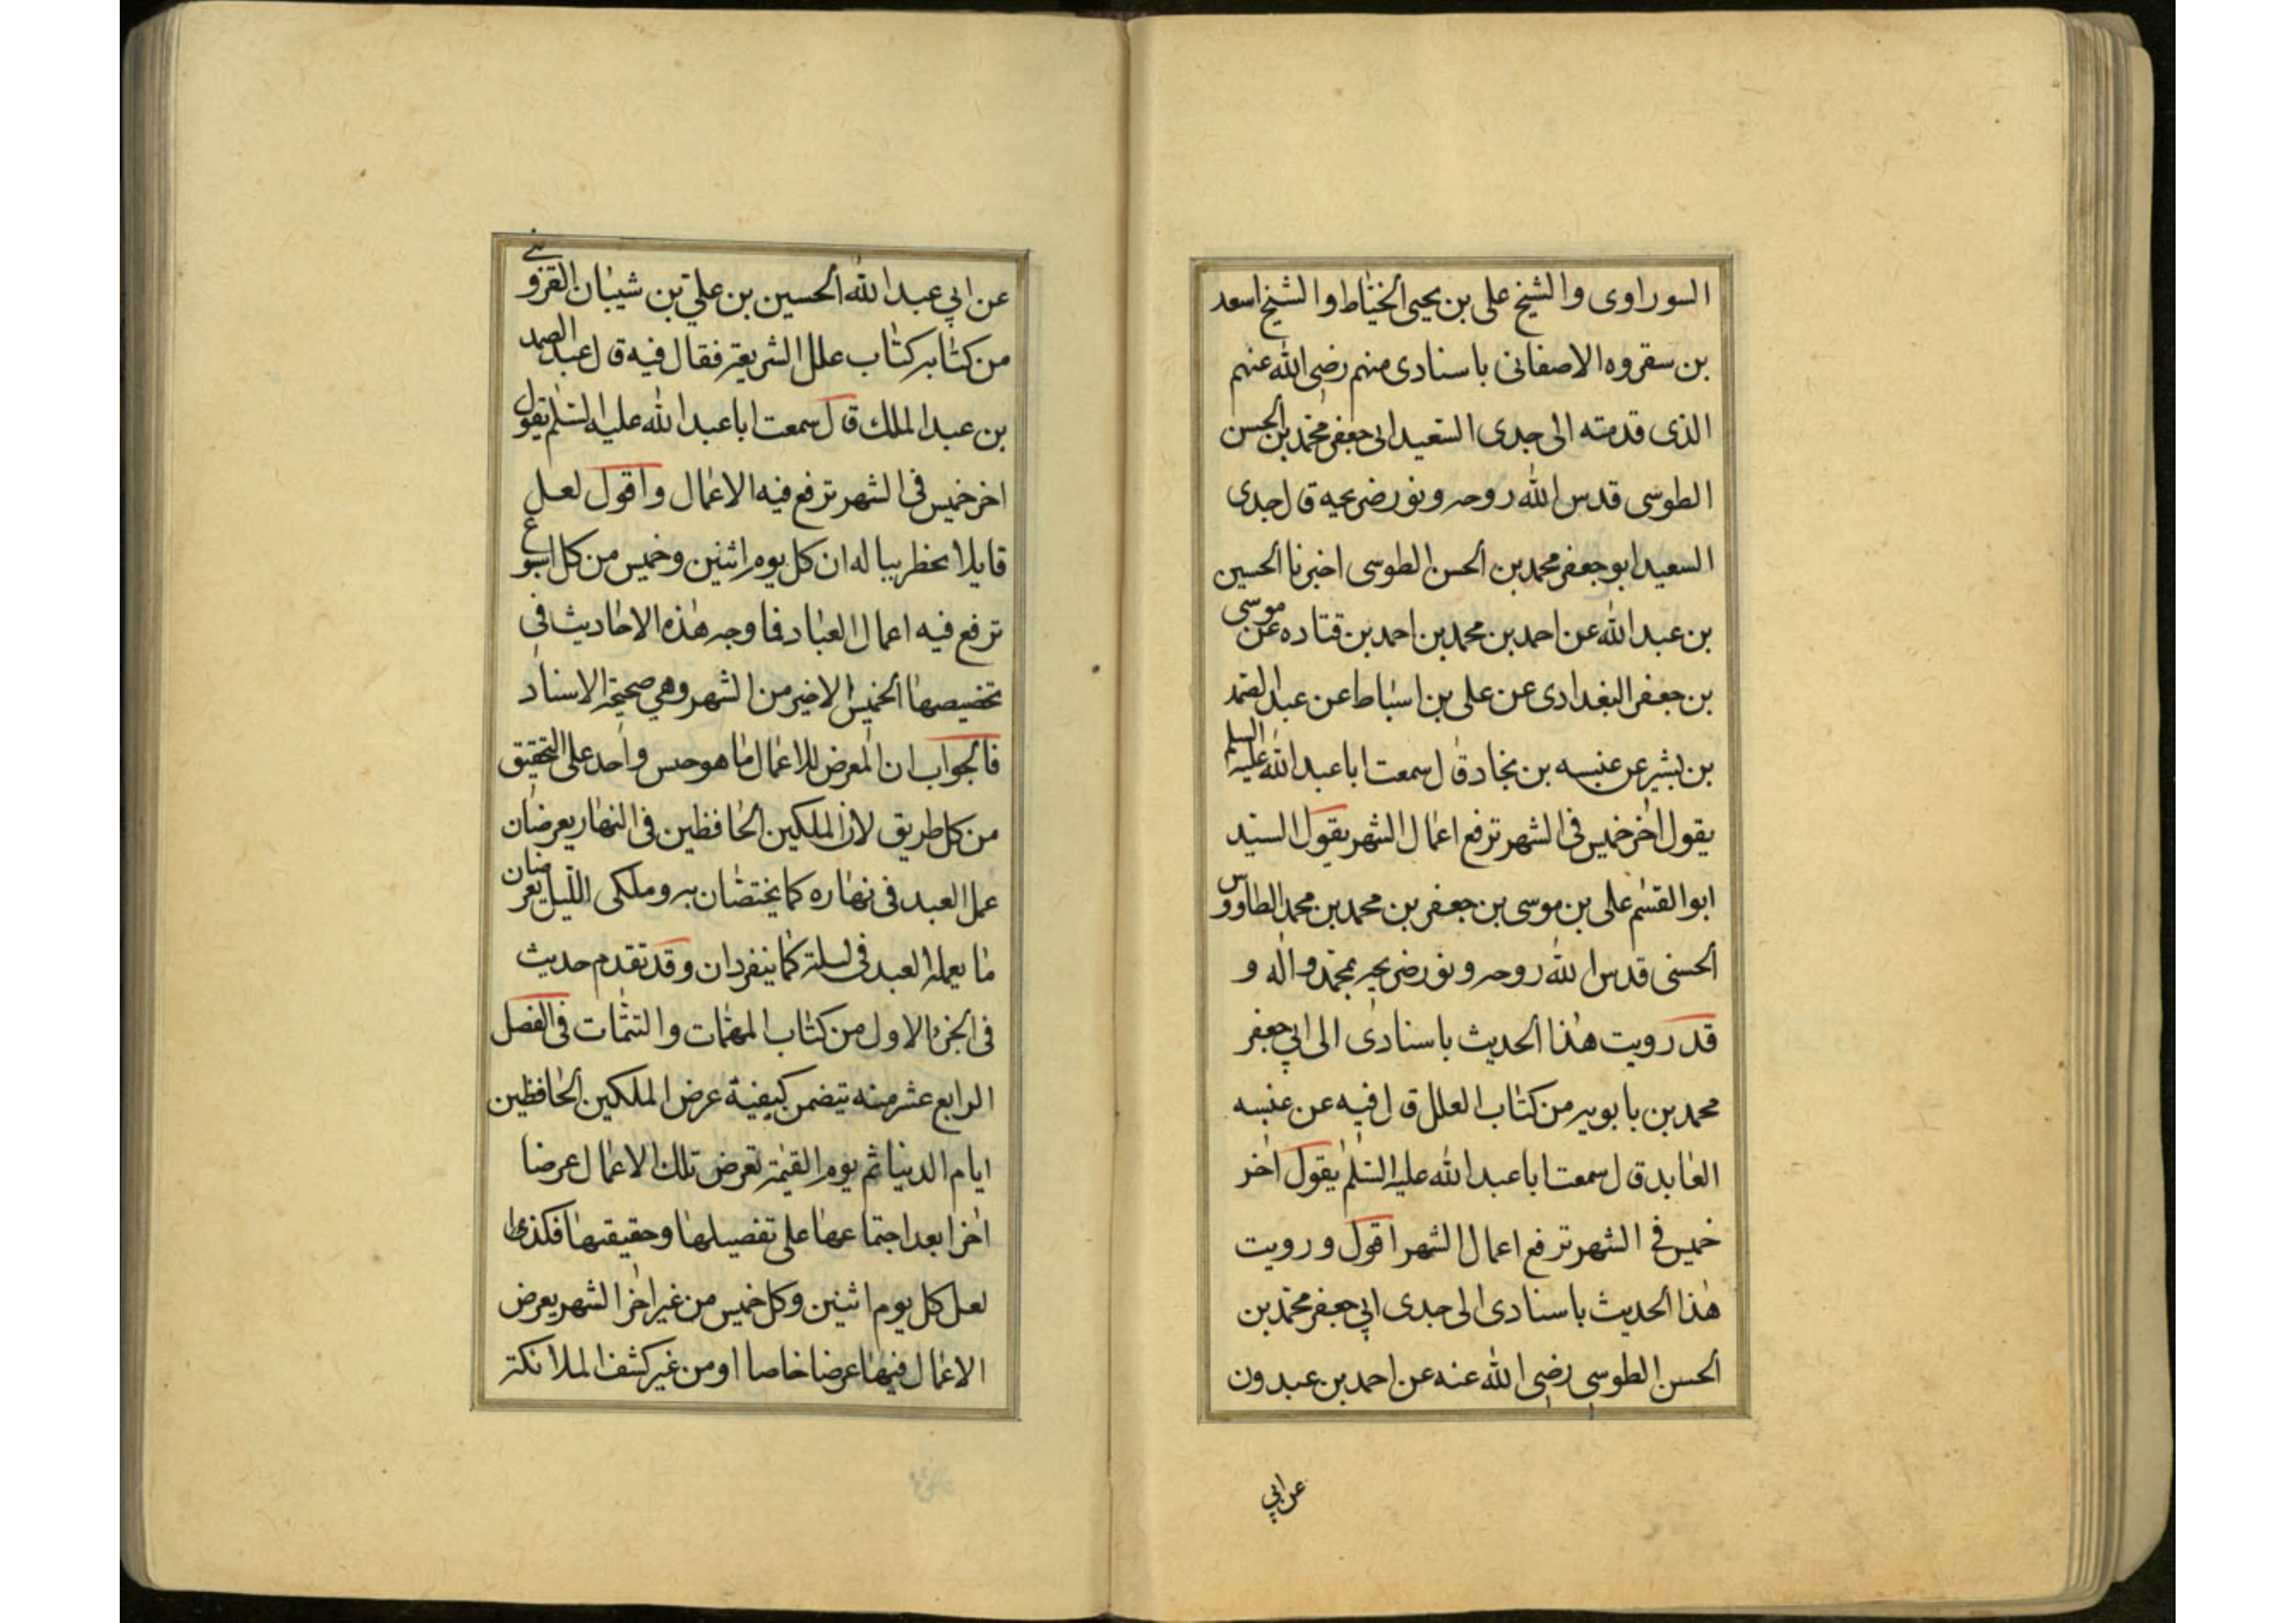 السوراوى والشيخ على بن يحيى الخياط والشيخ اسعد
بن سقروه الاصفانى باسنادى منهم رضى الله عنهم
الذى قدمته الى جدى السعيد ابى جعفر محمد بن الحسن
الطوسى قدس الله روحه ونور ضريحه قال جدى
السعيد ابو جعفر محمد بن الحسن الطوسى اخبرنا الحسين
بن عبد الله عن احمد بن محمد بن احمد بن قتاده عن موسى
بن جعفر البغدادى عن على بن اسباط عن عبد الصمد
بن بشير عن عنبسه بن بجاد قال سمعت ابا عبد الله عليه السلم
يقول اخر خميس فى الشهر ترفع اعمال الشهر يقول السيد
ابو القسم على بن موسى بن جعفر بن محمد بن محمد الطاووس
الحسنى قدس الله روحه ونور ضريحه بمحمد واله و
قد رويت هذا الحديث باسنادى الى ابي جعفر
محمد بن بابويه من كتاب العلل قال فيه عن عنبسه
العابد قال سمعت ابا عبد الله عليه السلم يقول اخر
خميس في الشهر ترفع اعمال الشهر اقول ورويت
هذا الحديث باسنادى الى جدى ابي جعفر محمد بن
الحسن الطوسي رضى الله عنه عن احمد بن عبدون
عن ابي
عن ابي عبد الله الحسين بن علي بن شيبان القزوينے
من كتابه كتاب علل الشريعة فقال فيه قال عبد الصمد
بن عبد الملك قال سمعت ابا عبد الله عليه السلم يقول
اخر خميس فى الشهر ترفع فيه الاعمال واقول لعل
قايلا يخطر بباله ان كل يوم اثنين وخميس من كل اسبوع
ترفع فيه اعمال العباد فما وجه هذه الاحاديث فى
تخصيصها الخميس الاخير من الشهر وهي صحيحة الاسناد
فالجواب ان المعرض للاعمال ما هو جنس واحد على التحقيق
من كل طريق لان الملكين الحافظين فى النهار يعرضان
عمل العبد فى نهاره كما يختصان به وملكى الليل يعرضان
ما يعمله العبد فى ليلة كما ينفردان وقد تقدم حديث
فى الجزء الاول من كتاب المهمات والتتمات فى الفصل
الرابع عشر منه يتضمن كيفية عرض الملكين الحافظين
ايام الدنيا ثم يوم القيمة تعرض تلك الاعمال عرضا
اخرا بعد اجتماعها على تفصيلها وحقيقتها فكذى
لعل كل يوم اثنين وكل خميس من غير اخر الشهر يعرض
الاعمال فيها عرضا خاصا او من غير كشف لملائكة